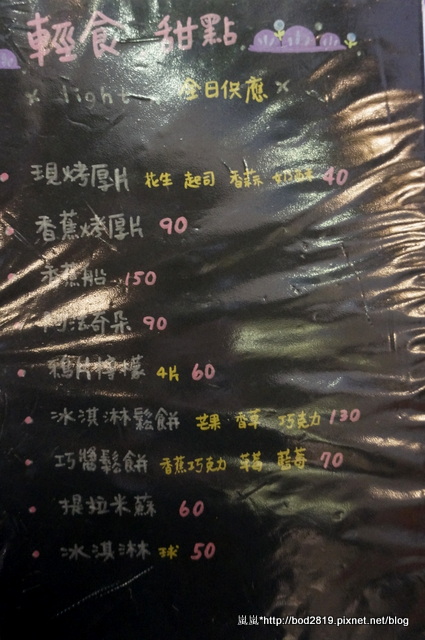 輕食 甜點
x light 全日供應 x
現烤厚片 花生 起司 香蒜 奶酥 40
香蕉烤厚片 90
香蕉船 150
阿法奇朵 90
鴉片檸檬 4片 60
冰淇淋鬆餅 芒果 香草 巧克力 130
巧醬鬆餅 香蕉巧克力 草莓 藍莓 70
提拉米蘇 60
冰淇淋 球 50
嵐嵐*http://bod2819.pixnet.net/blog